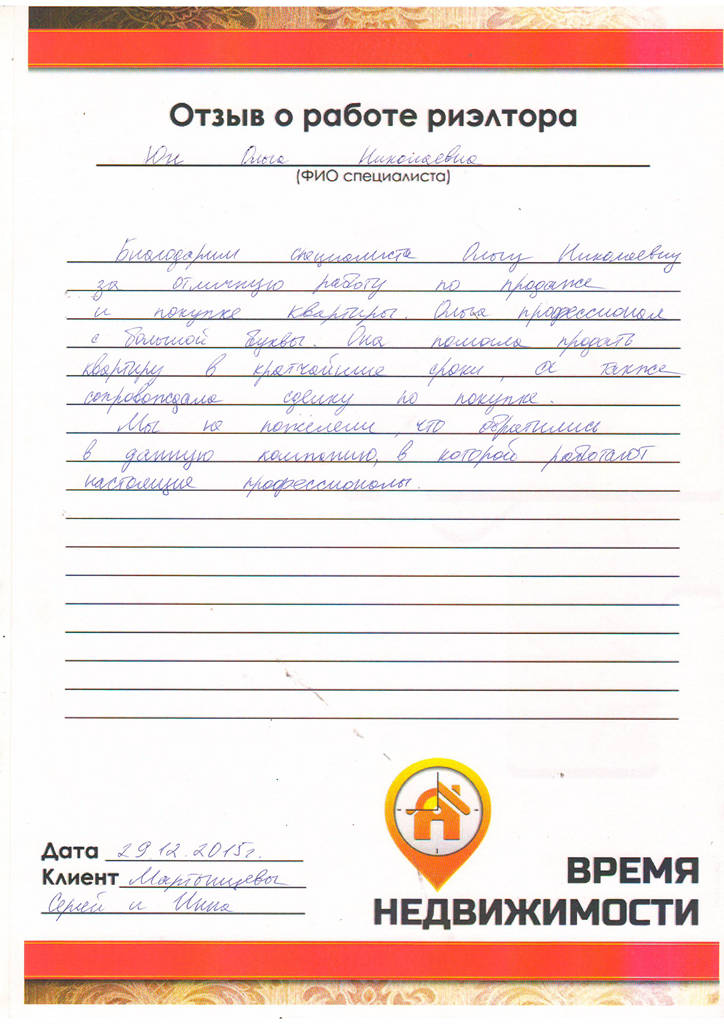 Отзыв о работе риэлтора
Юн Ольга Николаевна
(ФИО специалиста)
Благодарим специалиста Ольгу Николаевну
за отличную работу по продаже
и покупке квартиры. Ольга профессионал
с большой буквы. Она помогла продать
квартиру в кратчайшие сроки, а также
сопровождала сделку по покупке.
Мы не пожелели, что обратились
в данную компанию, в которой работают
настоящие профессионалы.
Дата 29.12.2015г.
Клиент
Сергей и Инна
ВРЕМЯ
НЕДВИЖИМОСТИ